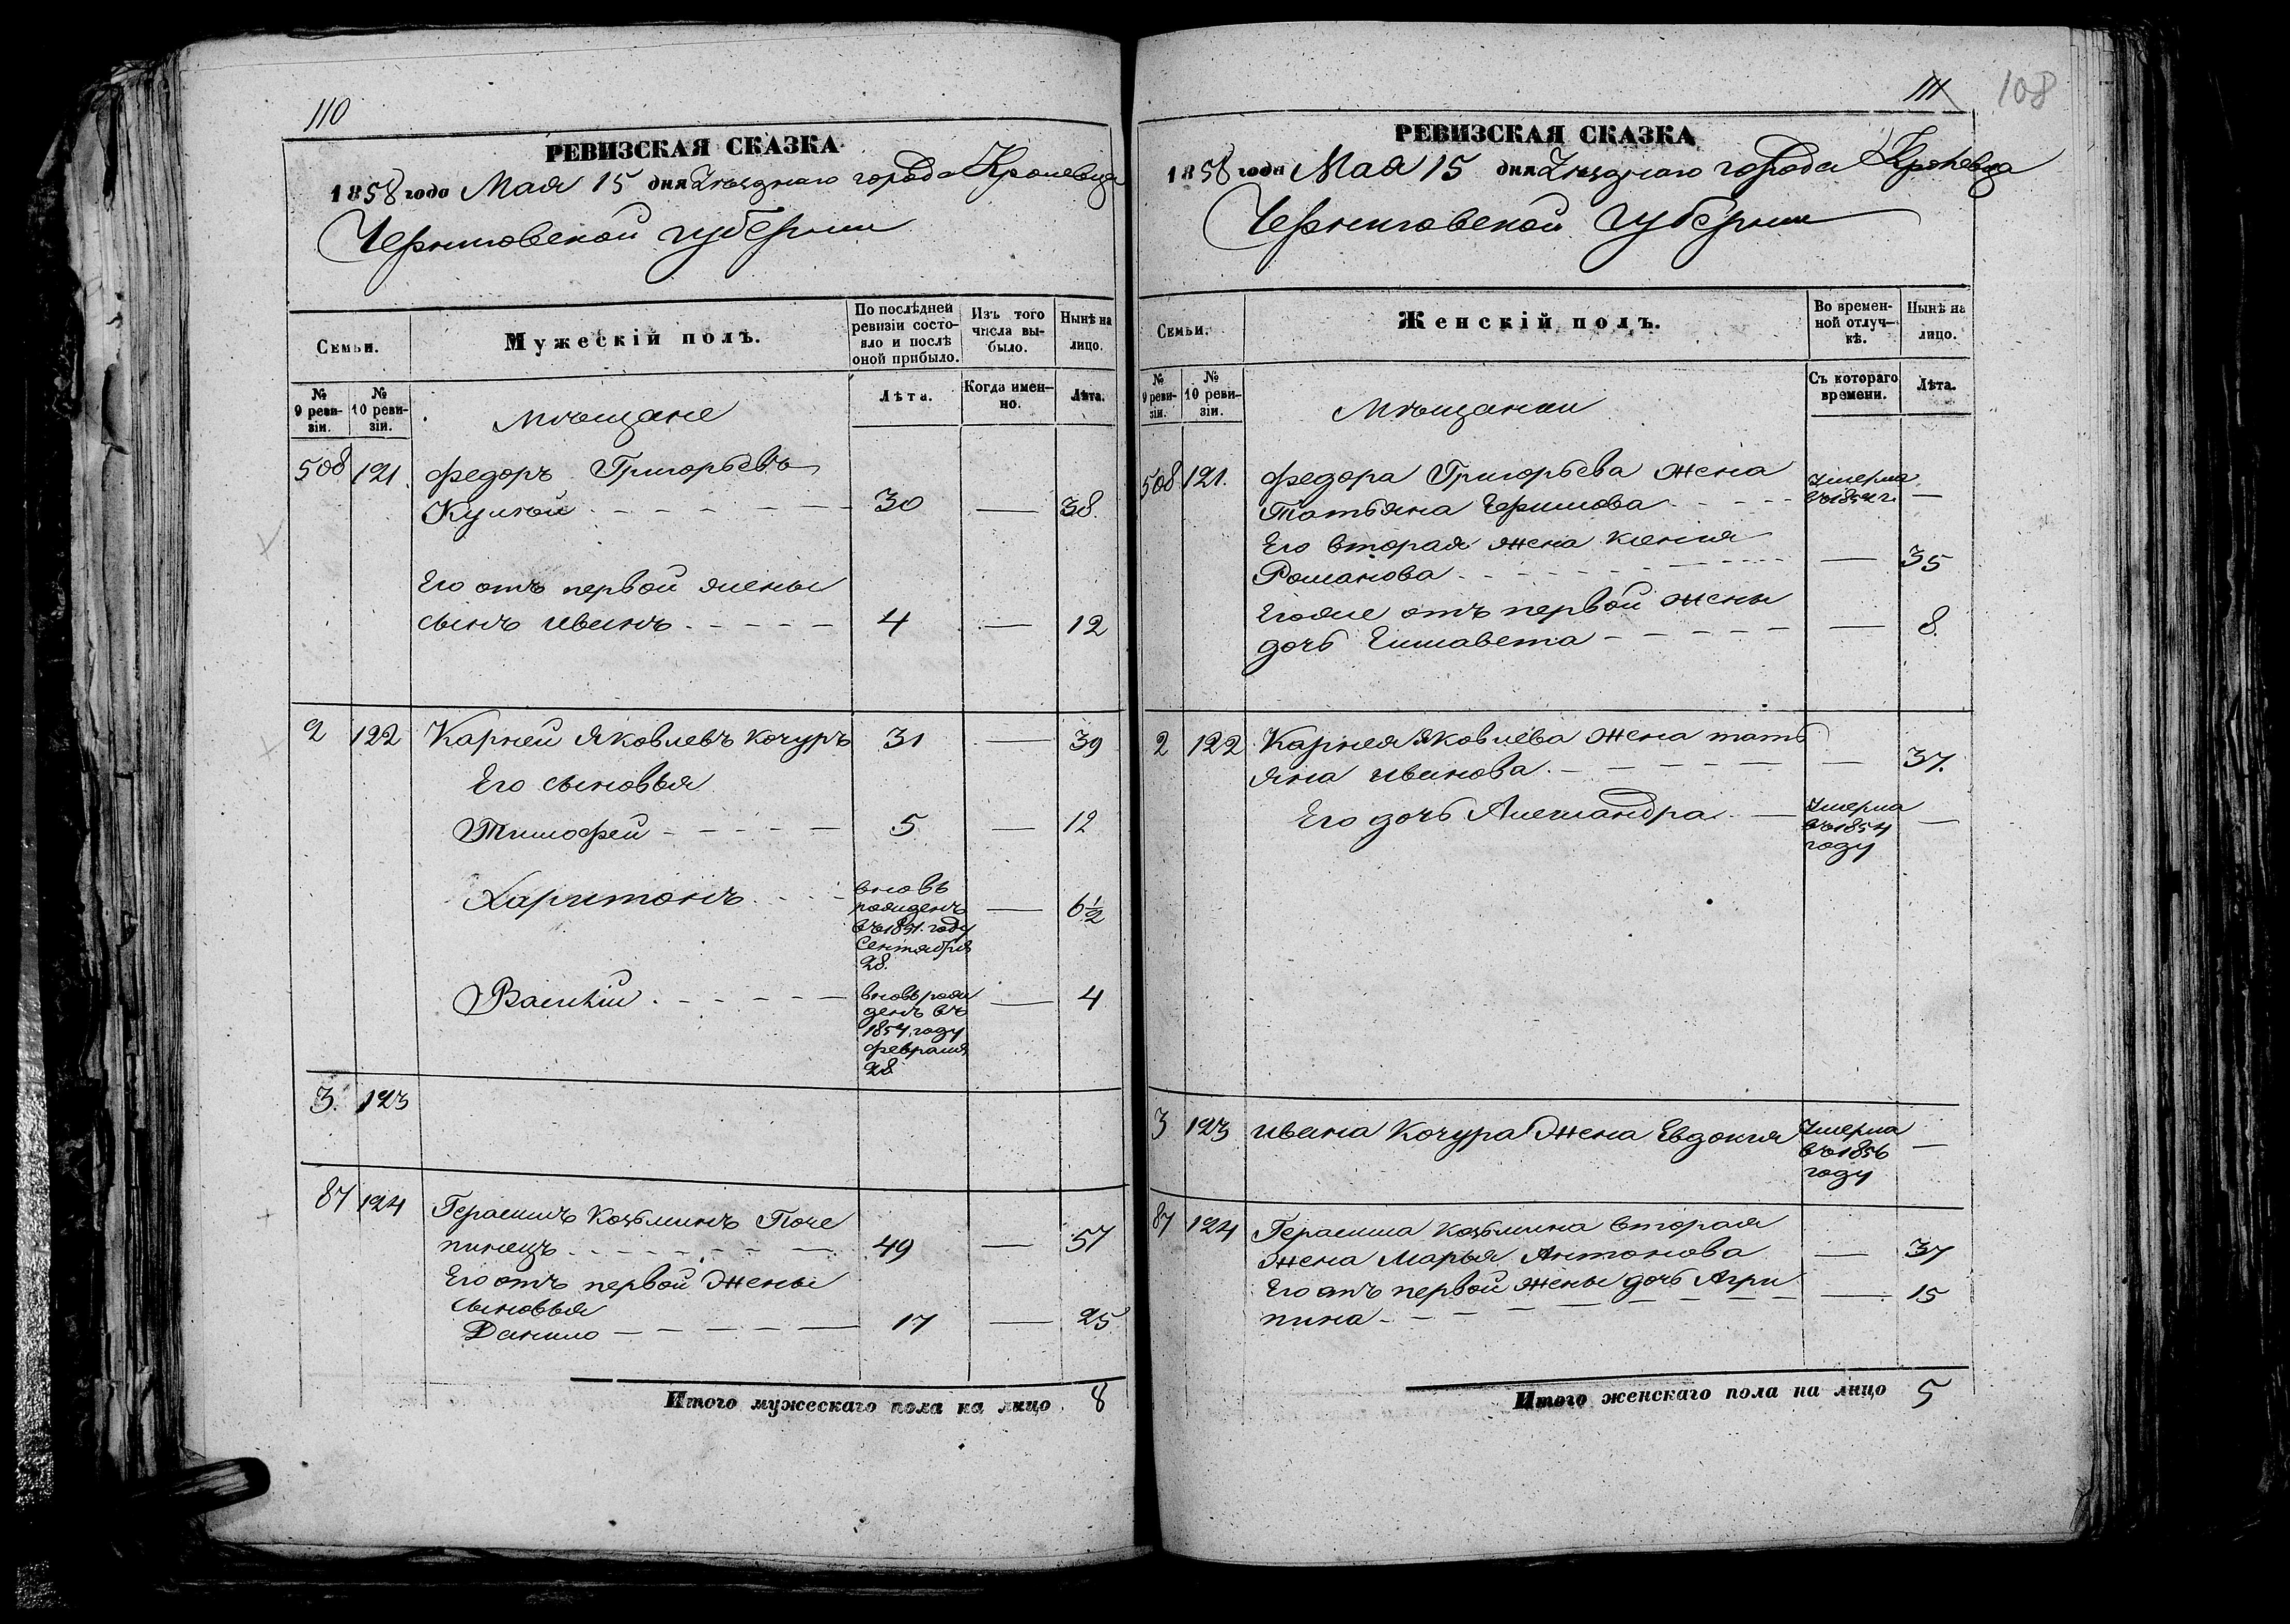 110
РЕВИЗСКАЯ СКАЗКА
1858 года Мая 15 дня Уезднаго города Кролевца
Черниговской губернии
Семьи.
Мужескій полъ.
По послѣдней ревизіи состо-
яло и послѣ оной прибыло.
Изъ того числа вы-
было.
Нынѣ на лицо.
№ 9 реви-
зіи.
№ 10 реви-
зіи.
Лѣта.
Когда имен-
но.
Лѣта.
Мѣщане
508 121. Федоръ Григорьевъ
30 — 38.
Его отъ первой жены
сынъ Иванъ 4 — 12
2 122 Карней Яковлевъ Кочуръ 31 — 39
Его сыновья
Тимофей 5 — 12
Харитонъ вновь — 6½
рожденъ
въ 1851 году
Сентября
28.
Василій вновь рож — 4
денъ въ
1854 году
февраля
28
3. 123
87 124 Герасимъ Козьминъ Поче
пинецъ 49 — 57
Его отъ первой жены
сыновья
Данило 17 — 25
Итого мужескаго пола на лицо 8
111
108
РЕВИЗСКАЯ СКАЗКА
1858 года Мая 15 дня Уезднаго города Кролевца
Черниговской губернии
Семьи.
Женскій полъ.
Во времен-
ной отлуч-
кѣ.
Нынѣ на лицо.
№ 9 реви-
зіи.
№ 10 реви-
зіи.
Съ котораго времени.
Лѣта.
Мѣщанки
508 121. Федора Григорьева жена Умерла
Татьяна Ефимова въ 1854 г. —
Его вторая жена Ксенія
Романова — 35
Егоже отъ первой жены
дочь Елисавета — 8.
2 122 Карнея Яковлева жена Тать
яна Иванова — 37.
Его дочь Александра Умерла —
въ 1854
году
3 123 Ивана Кочура жена Евдокия Умерла —
въ 1856
году
87 124 Герасима Козьмина вторая
жена Марья Антонова — 37
Его отъ первой жены дочь Агри — 15
пина
Итого женскаго пола на лицо 5